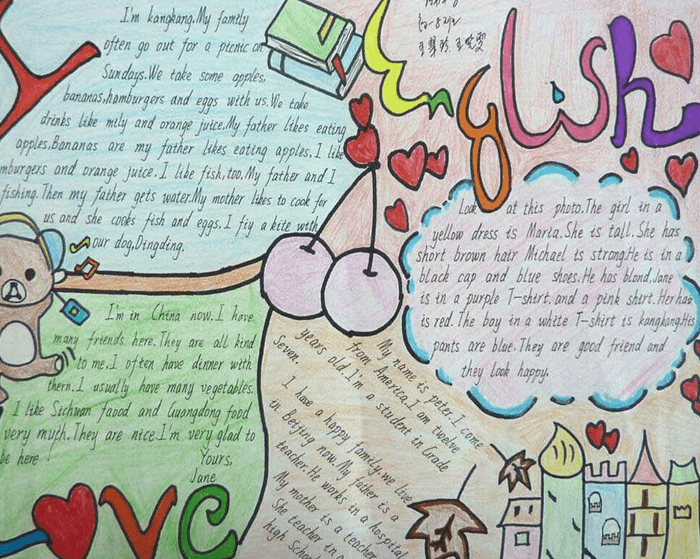 I'm kangkang.My family
often go out for a picnic on
Sundays.We take some apples,
bananas,hamburgers and eggs with us.We take
drinks like mily and orange juice.My father likes eating
apples.Bananas are my father likes eating apples.I like
mburgers and orange juice. I like fish,too.My father and I
fishing. Then my father gets water.My mother likes to cook for
us and she cooks fish and eggs. I fiy a kite with
our dog,Dingding.
English
Look at this photo.The girl in a
yellow dress is Maria.She is tall. She has
short brown hair Michael is strong.He is in a
black cap and blue shoes.He has blond.Jane
is in a purple T-shirt.and a pink shirt.Her hair
is red. The boy in a white T-shirt is kangkang.His
pants are blue.They are good friend and
they look happy.
I'm in China now.I have
many friends here.They are all kind
to me.I often have dinner with
them.I usually have many vegetables.
I like Sichuan faood and Guangdong food
very myth.They are nice.I'm very glad to
be here
Yours,
Jane
My name is peter.I come
from America.I am twelve
years old.I'm a student in Grade
Seven.
I have a happy family.we live
in Beijing now.My father is a
teacher.He works in a hospital
My mother is a teacher
She teacher in a
high School